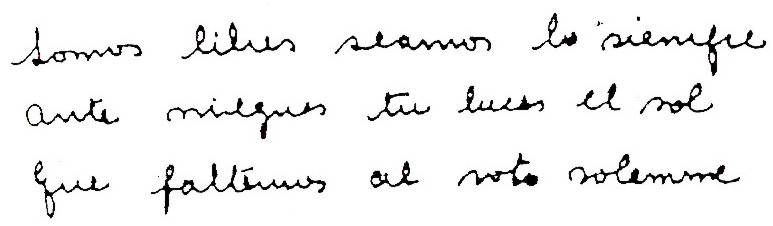 somos libres seamos lo siempre
ante niegues tu luces el sol
que faltemos al voto solemne